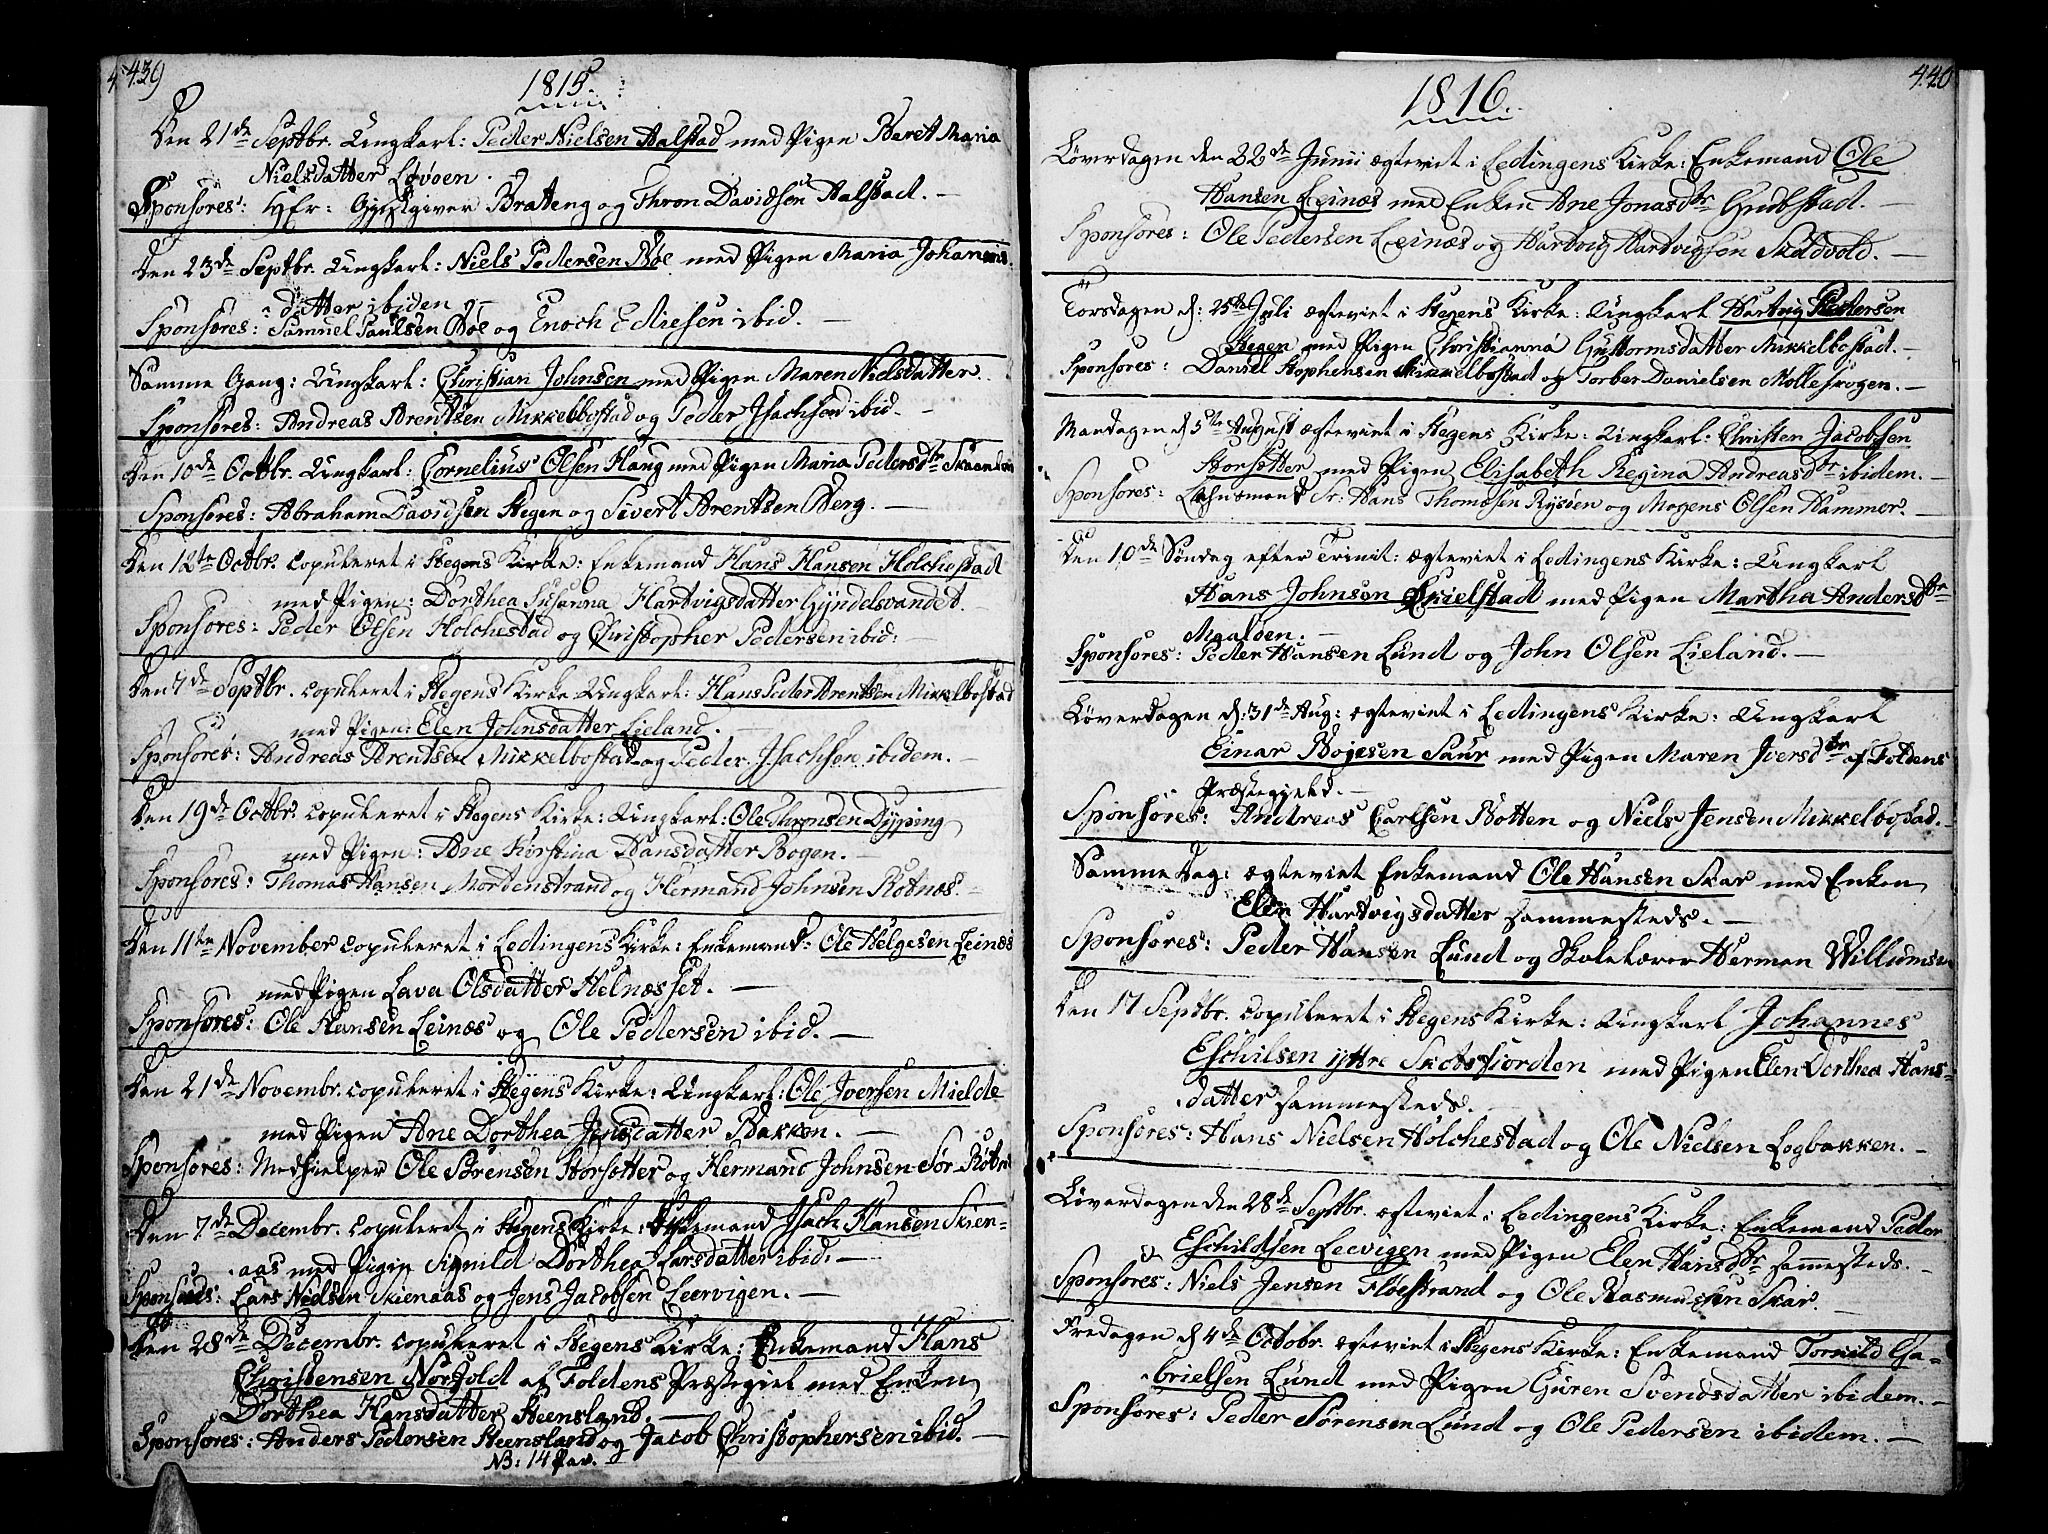 439
1815.
Den 21de Septbr. Ungkarl: Peder Nielsen Aalstad med Pigen Beret Maria
Nielsdatter Løvøen.
Sponsores: Hr: Gjestgiver Brateng og Thron Davidsen Aalstad.
Den 23de Septbr. Ungkarl: Niels Pedersen Bøe med Pigen Maria Johannis
datter ibiden
Sponsores: Samuel Paulsen Bøe og Enoch Ediesen ibid.
Samme Gang: Ungkarl: Christian Johnsen med Pigen Maren Nielsdatter
Sponsores: Andreas Arentsen Mikkelbostad og Peder Isachsen ibid.
Den 10de Octbr. Ungkarl: Cornelius Olsen Haug med Pigen Maria Pedersdtr
Sponsores: Abraham Davidsen Stegen og Sivert Arentsen Berg.
Den 12te Octbr. copuleret i Stegens Kirke: Enkemand Hans Hansen Holchestad
med Pigen: Dorthea Susanna Hartvigsdatter Gyndelsvandet.
Sponsores: Peder Olsen Holchestad og Christopher Pedersen ibid:
Den 7de Septbr. copuleret i Stegens Kirke Ungkarl: Hans Peder Arentsen Mikkelbostad
med Pigen: Elen Johnsdatter Lieland.
Sponsores: Andreas Arentsen Mikkelbostad og Peder Isachsen ibidem.
Den 19de Octbr. copuleret i Stegens Kirke: Ungkarl: Ole Thronsen Dypping
med Pigen: Ane Kirstina Hansdatter Bogen.
Sponsores: Thomas Hansen Mortenstrand og Hermand Johnsen Rotnæs
Den 11te November copuleret i Lødingens Kirke: Enkemand: Ole Helgesen Leinæs
med Pigen Lava Olsdatter Helnæsset.
Sponsores: Ole Hansen Leinæs og Ole Pedersen ibid.
Den 21de Novembr. copuleret i Stegens Kirke: Ungkarl: Ole Iversen Mielde
med Pigen Ane Dorthea Jensdatter Bakken.
Sponsores: Medhielper Ole Sørensen Storsetter og Hermand Johnsen Sør
Den 7de Decembr. copuleret i Stegens Kirke: Enkemand Isach Hansen Skien-
aas med Pigen Signild Dorthea Larsdatter ibid:
Sponsores: Lars Nielsen Skienaas og Jens Jacobsen Leervigen.
Den 28de Decembr. copuleret i Stegens Kirke: Enkemand Hans
Christensen Norfold af Foldens Præstegiel med Enken
Dorthea Hansdatter Steensland.
Sponsores: Anders Pedersen Steensland og Jacob Christophersen ibid.
NB: 14 Par.
440
1816.
Løverdagen den 22de Junii egteviet i Lødingens Kirke: Enkemand Ole
Hansen Leinæs med Enken Ane Jonasdtr Grubstad.
Sponsores: Ole Pedersen Leinæs og Hartvig Hartvigsen Skidvold.
Torsdagen d: 25de Juli egteviet i Stegens Kirke: Ungkarl Hartvig Pedersen
Stegen med Pigen Christianna Guttormsdatter Mikkelbostad.
Sponsores: Daniel Stephensen Mikkelbostad og Torber Danielsen Molleskogen.
Mandagen d 5te August egteviet i Stegens Kirke: Ungkarl: Christen Jacobsen
Storsetter med Pigen Elisabeth Regina Andreasdtr ibidem.
Sponsores: Lehnsmand Sr: Hans Thomesen Rysøen og Mogens Olsen Hammer.
Den 10de Søndag efter Trinit: egteviet i Lødingens Kirke: Ungkarl
Hans Johnsen Skielstad med Pigen Martha Andersdtr
Maalden.
Sponsores: Peder Hansen Lund og John Olsen Lieland.
Løverdagen d: 31de Aug: egteviet i Lødingens Kirke: Ungkarl
Einar Bojesen Saur med Pigen Maren Iversdtr af Foldens
Præstegield.
Sponsores: Andreas Carlsen Botten og Niels Jensen Mikkelbostad.
Samme Dag: egteviet Enkemand Ole Hansen Skar med Enken
Elen Hartvigsdatter sammesteds.
Sponsores: Peder Hansen Lund og Skolelærer Herman Willumsen
Den 17 Septbr. copuleret i Stegens Kirke: Ungkarl Johannes
Eschilsen yttre Skotsfiorden med Pigen Elen Dorthea Hans-
datter sammesteds.
Sponsores: Hans Nielsen Holchestad og Ole Nielsen Logbakken.
Løverdagen den 28de Septbr. egteviet i Lødingens Kirke: Enkemand Peder
Eschildsen Leevigen med Pigen Elen Hansdtr sammesteds.
Sponsores: Niels Jensen Fløestrand og Ole Rasmussen Skar.
Fredagen d 4de Octobr. egteviet i Stegens Kirke: Enkemand Tornild Ga-
brielsen Lund med Pigen Guren Svendsdatter ibidem.
Sponsores: Peder Sørensen Lund og Ole Pedersen ibidem.